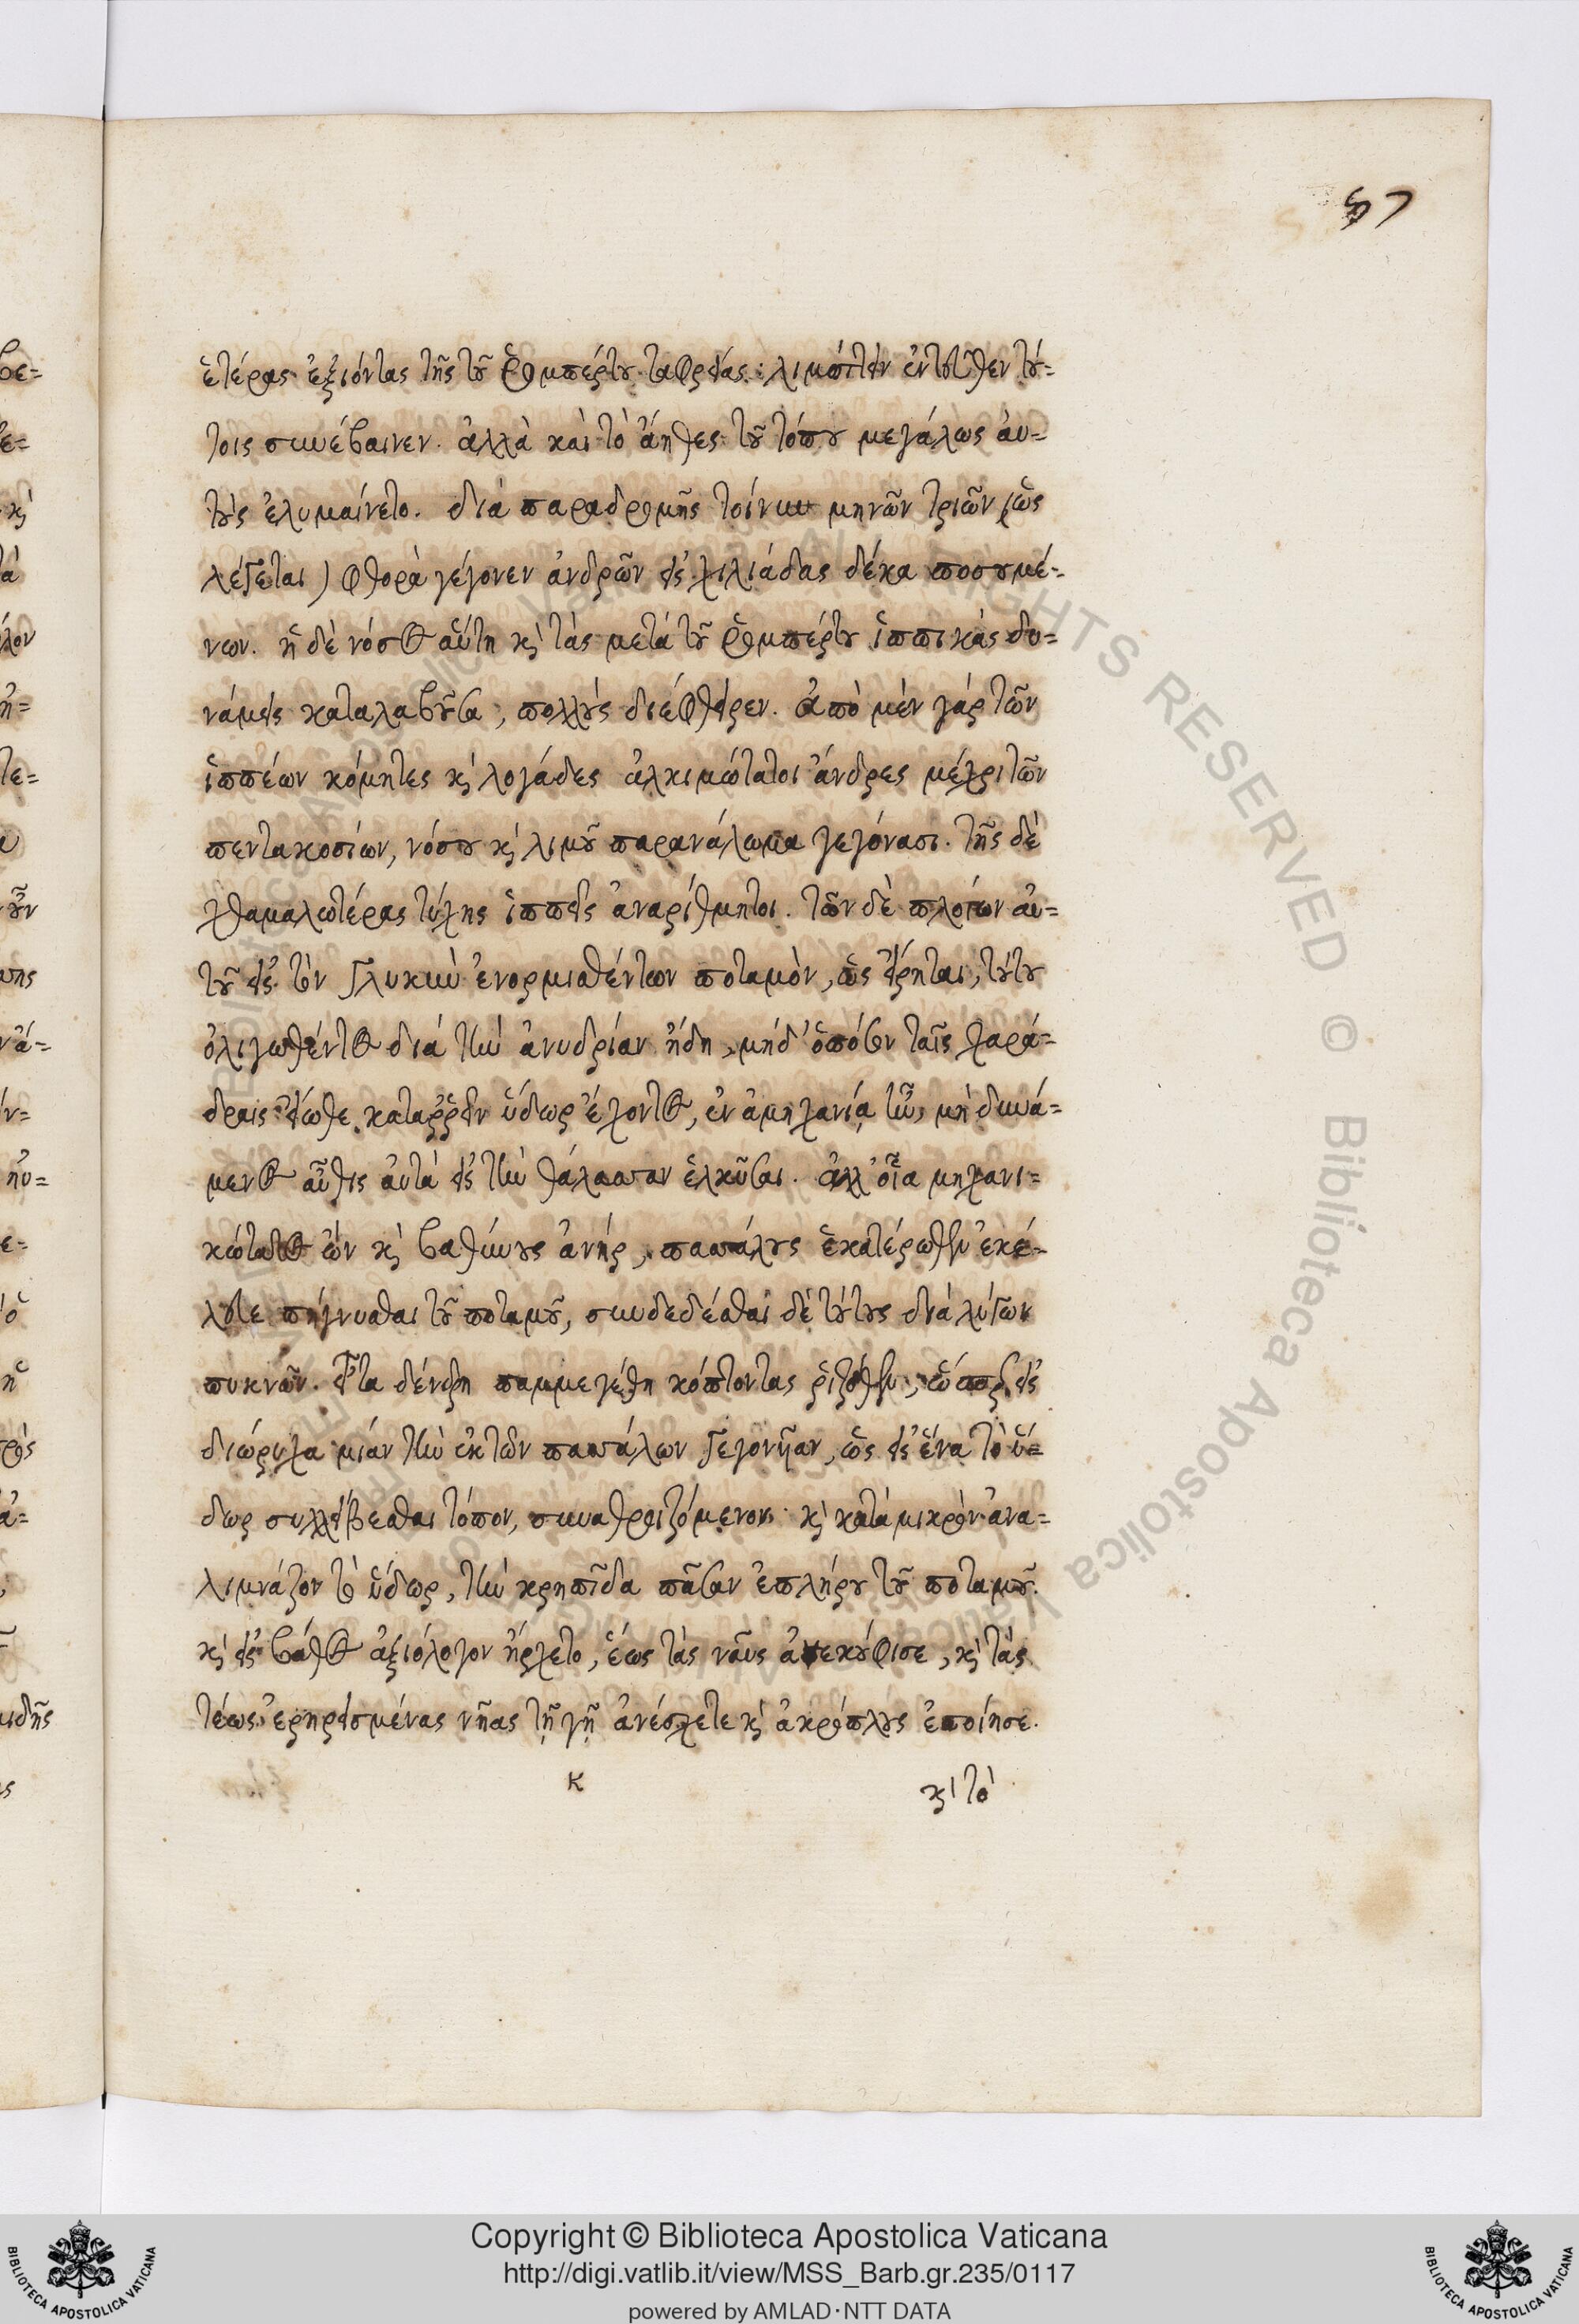 57
ἑτέρας ἐξιόντας τῆς τοῦ Ῥομπέρτου ταφρείας. λιμώττειν ἐντεῦθεν τού=
τοις συνέβαινεν. ἀλλὰ καὶ τὸ ἄηθες τοῦ τόπου μεγάλως αὐ=
τοὺς ἐλυμαίνετο. διὰ παραδρομῆς τοίνυν μηνῶν τριῶν (ὡς
λέγεται) φθορὰ γέγονεν ἀνδρῶν εἰς χιλιάδας δέκα ποσουμέ=
νων. ἡ δὲ νόσος αὕτη καὶ τὰς μετὰ τοῦ Ῥομπέρτου ἱππικὰς δυ=
νάμεις καταλαβοῦσα, πολλοὺς διέφθειρεν. ἀπὸ μὲν γὰρ τῶν
ἱππέων κόμητες καὶ λογάδες ἀλκιμώτατοι ἄνδρες μέχρι τῶν
πεντακοσίων, νόσου καὶ λιμοῦ παρανάλωμα γεγόνασι. τῆς δὲ
χθαμαλωτέρας τύχης ἱππεῖς ἀναρίθμητοι. τῶν δὲ πλοίων αὐ=
τοῦ εἰς τὸν Γλυκὺν ἐνορμισθέντων ποταμὸν, ὡς εἴρηται, τούτου
ὀλιγωθέντος διὰ τὴν ἀνυδρίαν ἤδη, μήδ' ὁπόσον ταῖς χαρά=
δραις εἴωθε καταῤῥεῖν ὕδωρ ἔχοντος, ἐν ἀμηχανίᾳ ἦν, μὴ δυνά=
μενος αὖθις αὐτὰ εἰς τὴν θάλασσαν ἑλκῦσαι. ἀλλ' οἷα μηχανι=
κώτατος ὢν καὶ βαθύνους ἀνήρ, πασσάλους ἑκατέρωθεν ἐκέ=
λευε πήγνυσθαι τοῦ ποταμοῦ, συνδεδέσθαι δὲ τούτους διὰ λύγων
πυκνῶν. εἶτα δένδρη παμμεγέθη κόπτοντας ῥιζόθεν, ὥσπερ εἰς
διώρυχα μίαν τὴν ἐκ τῶν πασσάλων γεγονυῖαν, ὡς εἰς ἕνα τὸ ὕ=
δωρ συλλείβεσθαι τόπον, συναθροιζόμενον. καὶ κατὰ μικρὸν ἀνα=
λιμνάζον τὸ ὕδωρ, τὴν κρηπῖδα πᾶσαν ἐπλήρου τοῦ ποταμοῦ.
καὶ εἰς βάθος ἀξιόλογον ἤρχετο, ἕως τὰς ναῦς ἀπεκούφισε, καὶ τὰς
τέως ἐρηρεισμένας νῆας τῇ γῇ ἀνέσχετε καὶ ἀκρόπλους ἐποίησε.
κ
καὶ τὸ
Copyright © Biblioteca Apostolica Vaticana
http://digi.vatlib.it/view/MSS_Barb.gr.235/0117
powered by AMLAD·NTT DATA